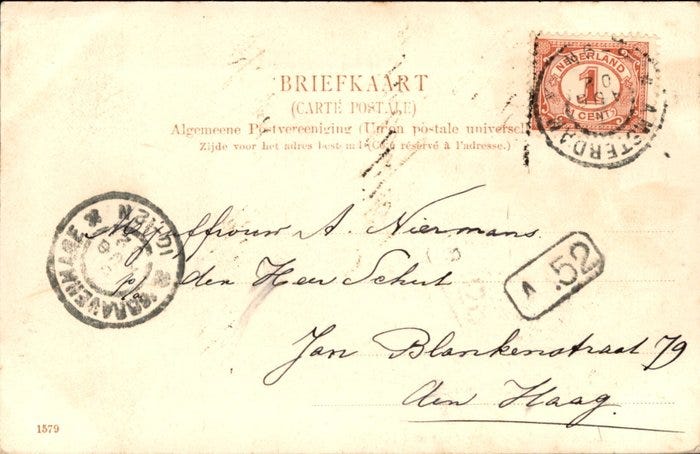 BRIEFKAART
(CARTE POSTALE)
Algemeene Postvereeniging (Union postale universel
Zijde voor het adres bestemd (Côté réservé à l'adresse.)
NEDERLAND
1
CENT
AMSTERDAM
'SGRAVENHAGE
Mejuffrouw A. Niermans
p/a den Heer Schut
Jan Blankenstraat 79
den Haag
A .52
1579